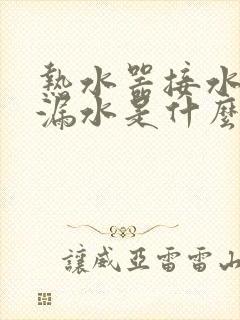 熱水器接水
漏水是什麼
讓威亞雷雷山